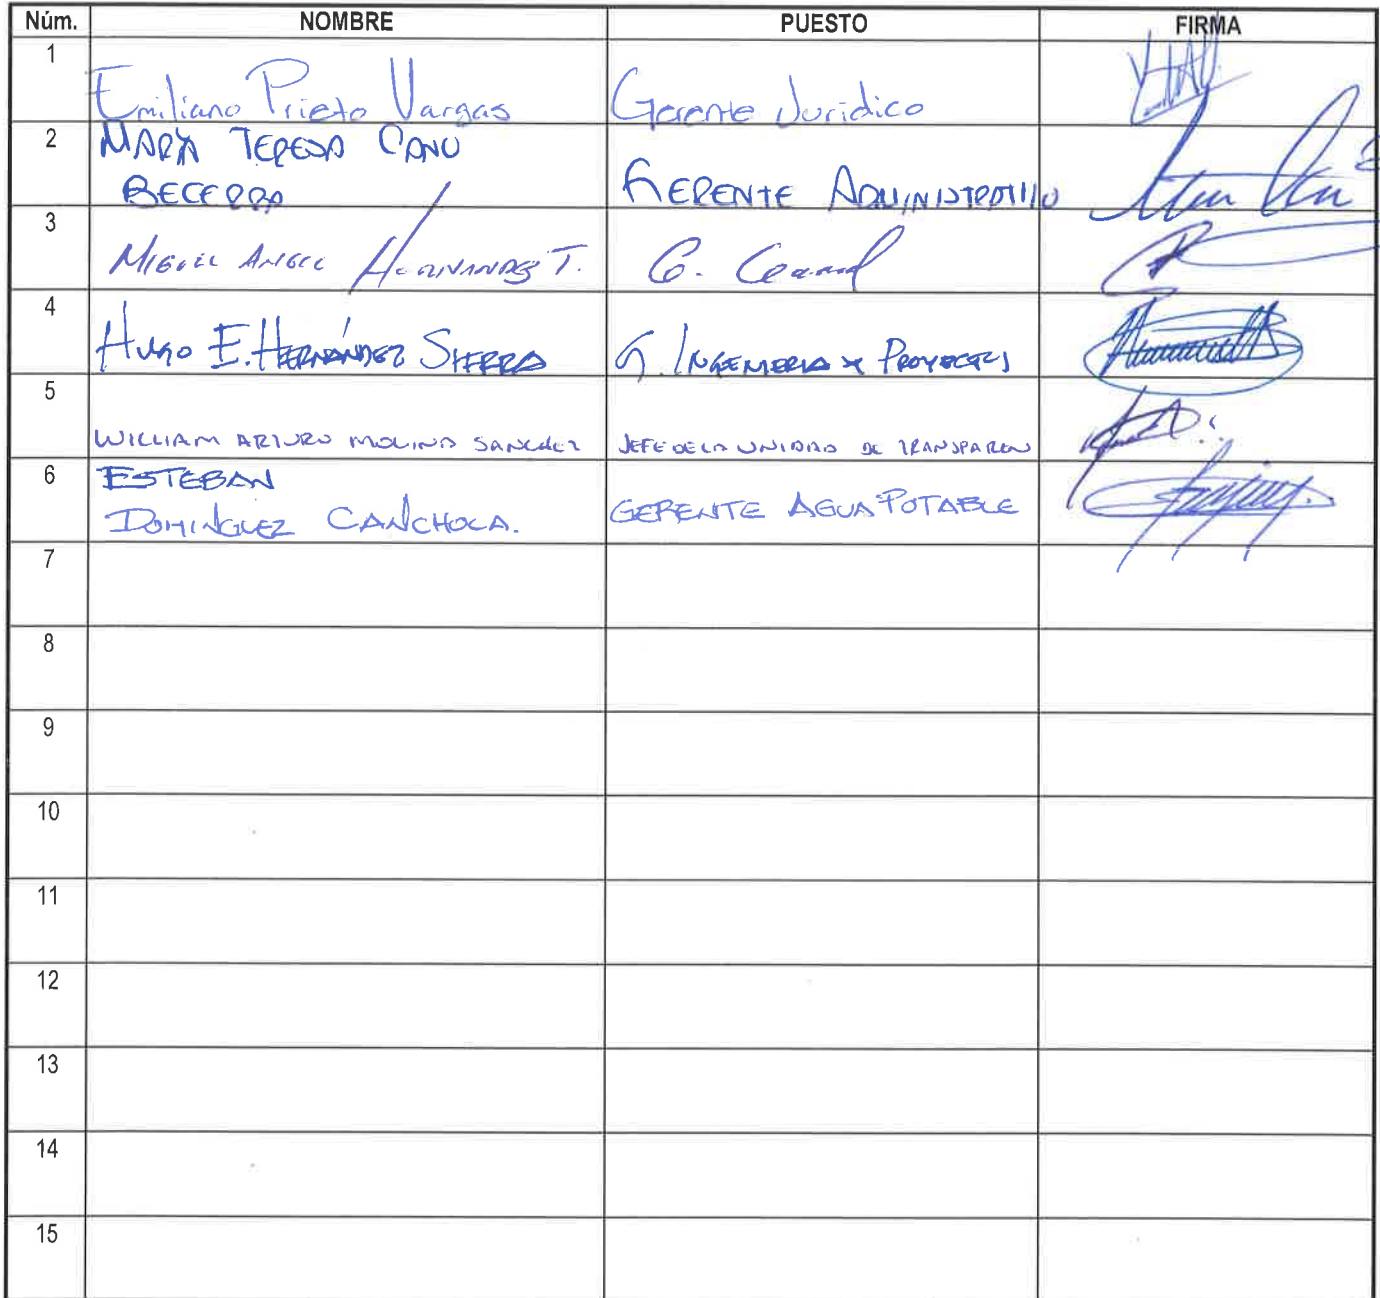 Núm. NOMBRE PUESTO FIRMA
1 Emiliano Prieto Vargas Gerente Juridico
2 MARIA TERESA CANO
BECERRA GERENTE ADMINISTRATIVO
3 MIGUEL ANGEL HERNANDEZ T. G.
4 HUGO E. HERNÁNDEZ SIERRA G. INGENIERIA Y PROYECTOS
5 WILLIAM ARTURO MOLINA SANCHEZ JEFE DE LA UNIDAD DE TRANSPAREN
6 ESTEBAN
DOMINGUEZ CANCHOLA. GERENTE AGUA POTABLE
7
8
9
10
11
12
13
14
15